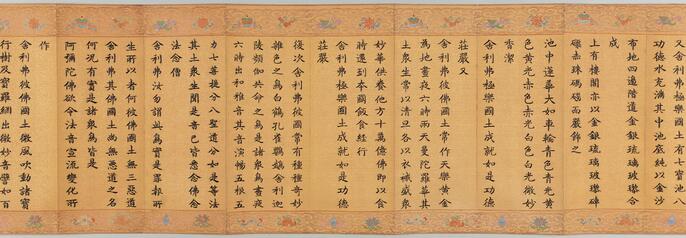 又舍利弗極樂國土有七寶池八
功德水充滿其中池底純以金沙
布地四邊階道金銀琉璃玻瓈合
成
上有樓閣亦以金銀琉璃玻瓈硨
磲赤珠碼碯而嚴飾之
池中蓮華大如車輪青色青光黃
色黃光赤色赤光白色白光微妙
香潔
舍利弗極樂國土成就如是功德
莊嚴又
舍利弗彼佛國土常作天樂黃金
為地晝夜六時雨天曼陀羅華其
土眾生常以清旦各以衣祴盛眾
妙華供養他方十萬億佛即以食
時還到本國飯食經行
舍利弗極樂國土成就如是功德
莊嚴
復次舍利弗彼國常有種種奇妙
雜色之鳥白鶴孔雀鸚鵡舍利迦
陵頻伽共命之鳥是諸眾鳥晝夜
六時出和雅音其音演暢五根五
力七菩提分八聖道分如是等法
其土眾生聞是音已皆悉念佛念
法念僧
舍利弗汝勿謂此鳥實是罪報所
生所以者何彼佛國土無三惡道
舍利弗其佛國土尚無惡道之名
何況有實是諸眾鳥皆是
阿彌陀佛欲令法音宣流變化所
作
舍利弗彼佛國土微風吹動諸寶
行樹及寶羅網出微妙音譬如百